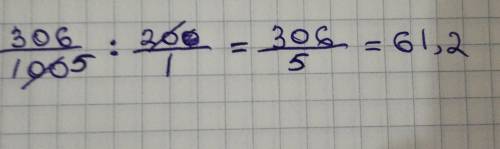 306/1005 : 200/1 = 306/5 = 61,2